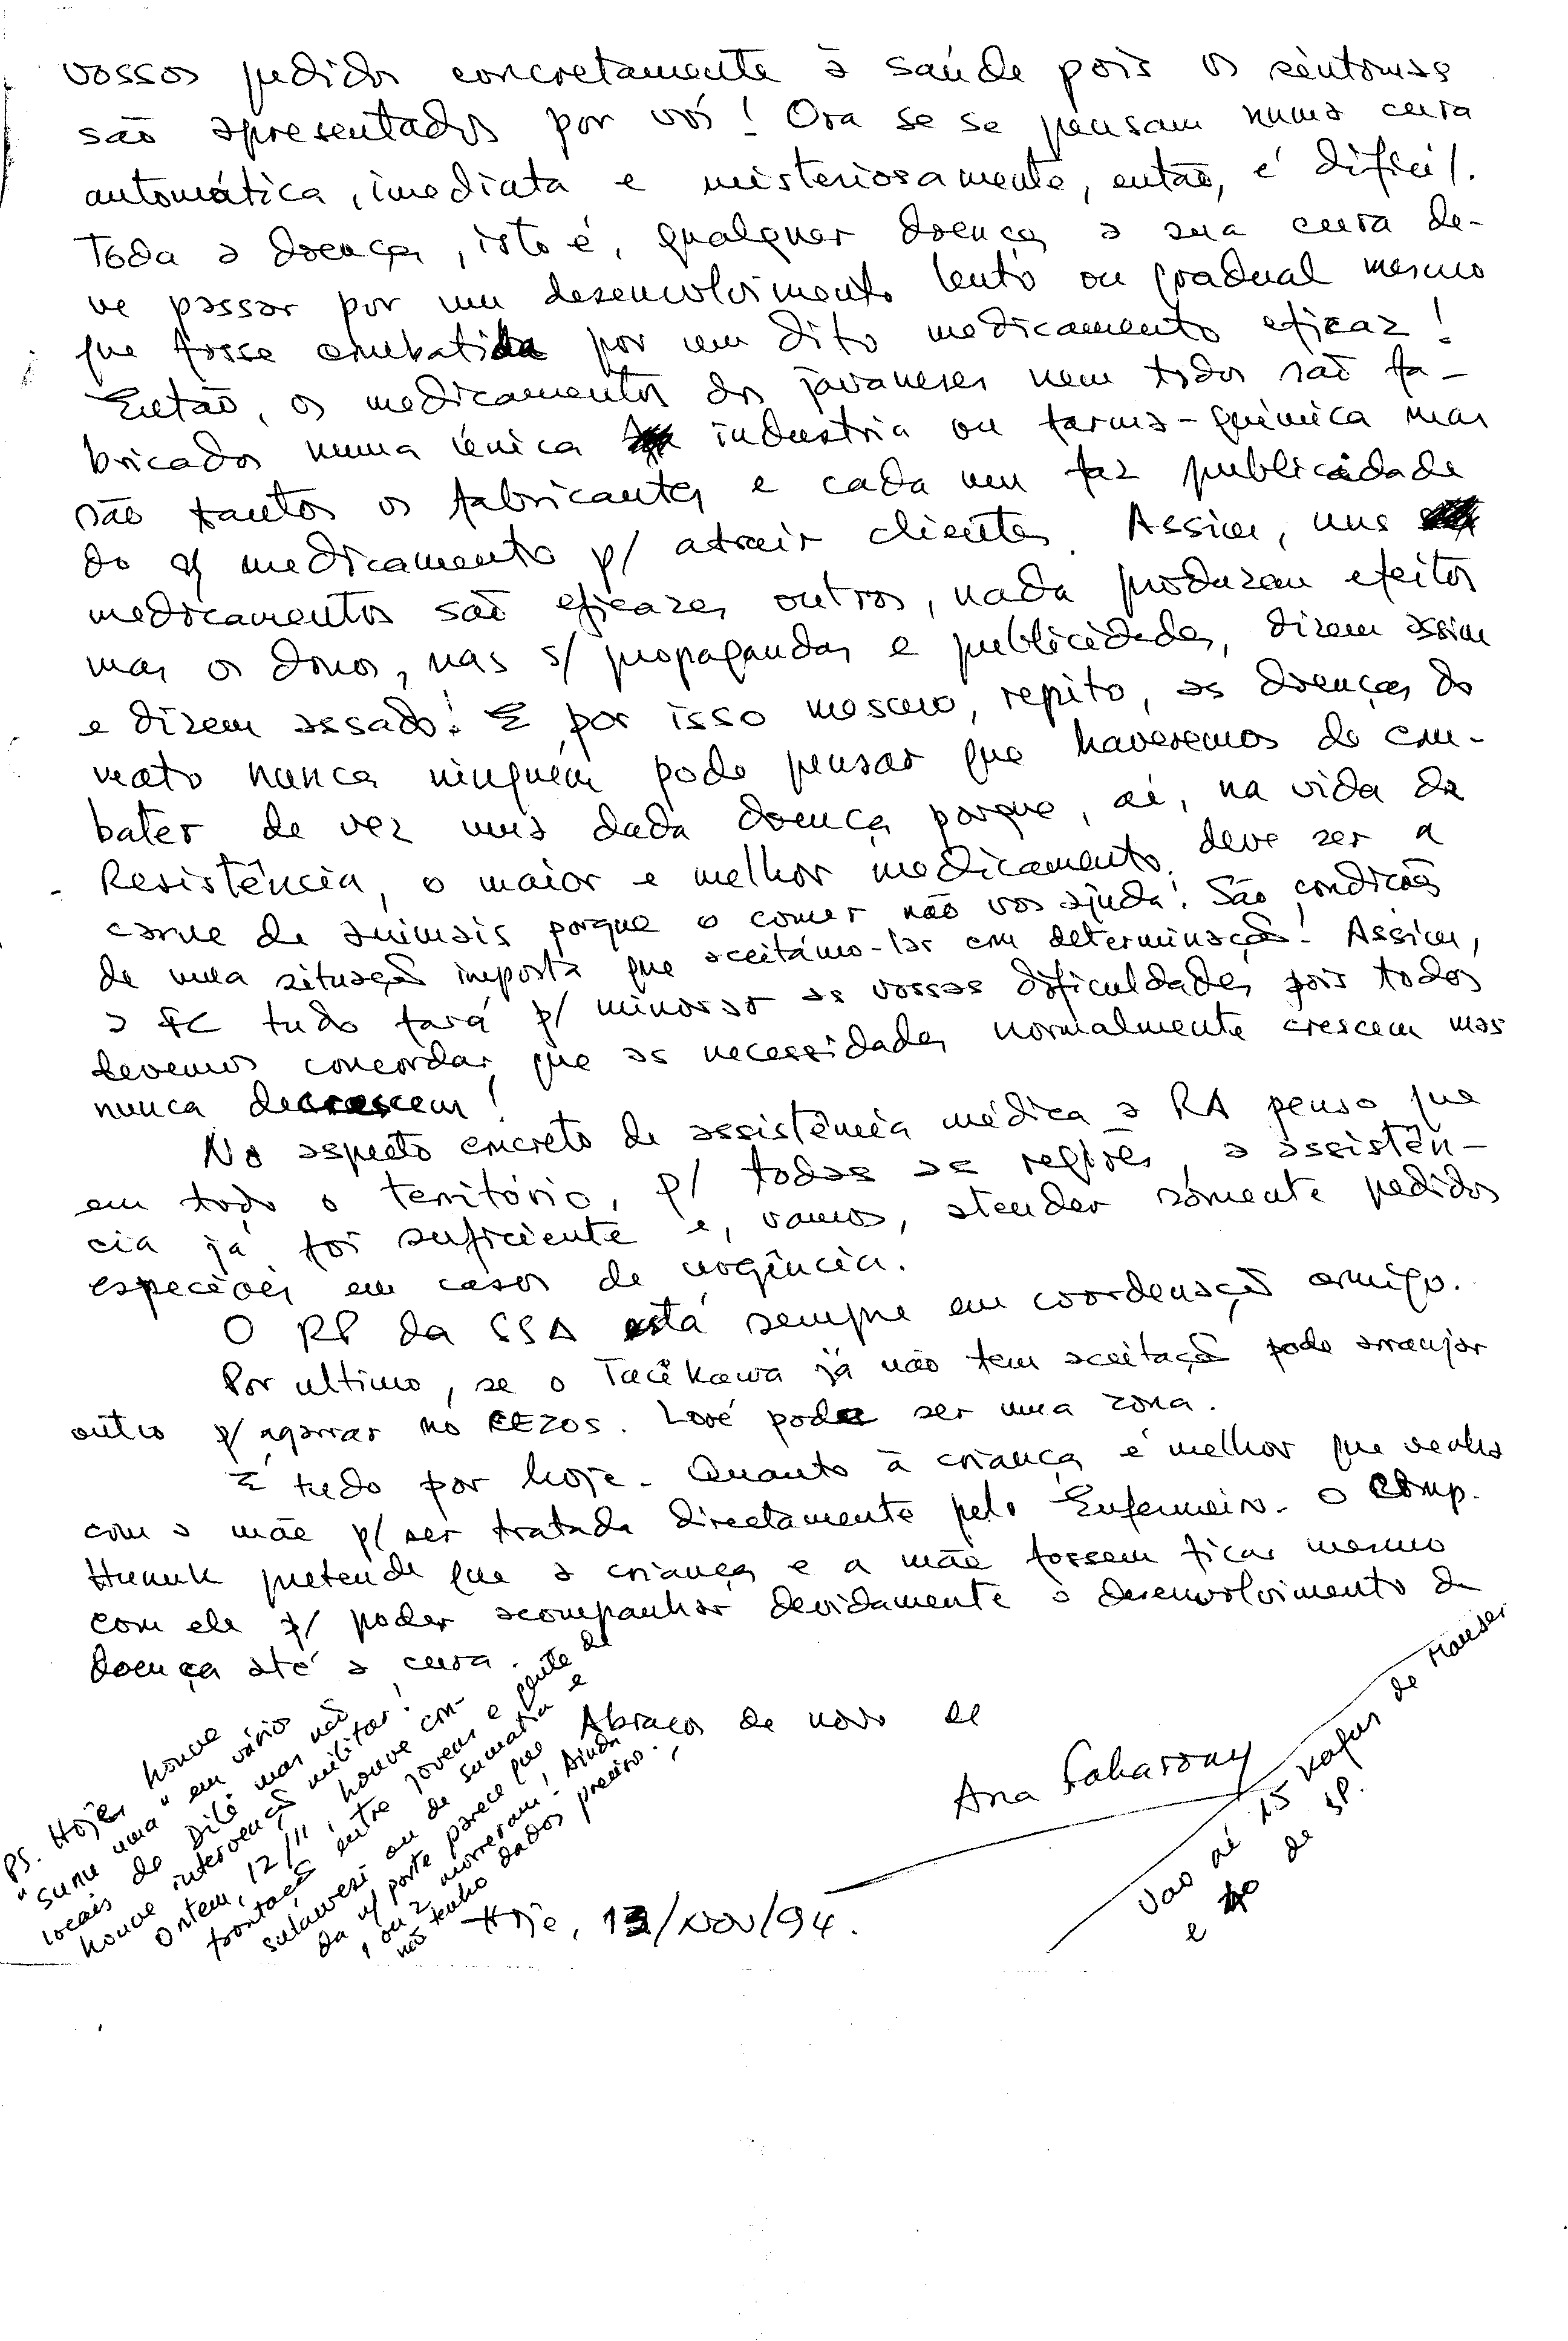 vossos pedidos concretamente à saúde pois os sintomas
são apresentados por vós! Ora se se pensam numa cura
automática, imediata e misteriosamente, então, é difícil.
Toda a doença, isto é, qualquer doença a sua cura de-
ve passar por um desenvolvimento lento ou gradual mesmo
que fosse combatida por um dito medicamento eficaz!
Então, os medicamentos dos javaneses nem todos são fa-
bricados numa única industria ou farma-química mas
são tantos os fabricantes e cada um faz publicidade
do medicamento p/ atrair clientes. Assim, uns
medicamentos são eficazes outros, nada produzem efeitos
mas os donos, nas s/ propagandas e publicidades, dizem assim
e dizem assado! E por isso mesmo, repito, as doenças do
mato nunca ninguém pode pensar que haveremos de com-
bater de vez uma dada doença porque, aí, na vida da
Resistência, o maior e melhor medicamento deve ser a
carne de animais porque o comer não vos ajuda! São condições
de uma situação imposta que aceitámo-las com determinação! Assim,
a FC tudo fará p/ minorar as vossas dificuldades pois todos
devemos concordar que as necessidades normalmente crescem mas
nunca decrescem!
No aspecto concreto de assistência médica a RA penso que
em todo o território, p/ todas as regiões, a assistên-
cia já foi suficiente e, vamos, atender sómente pedidos
especiais em casos de urgência.
O RP da SSA está sempre em coordenação comigo.
Por ultimo, se o Tacikawa já não tem aceitação pode arranjar
outro p/ agarrar no CEZOS. Loré pode ser uma zona.
É tudo por hoje. Quanto à criança é melhor que venha
com a mãe p/ ser tratada directamente pelo Enfermeiro. O Comp.
Hunuk pretende que a criança e a mãe fossem ficar mesmo
com ele p/ poder acompanhar devidamente o desenvolvimento da
doença até a cura.
Abraços de novo de
Ana Saharony
Hoje, 13/NOV/94.
PS. Hoje, houve
"sunu uma" em vários
locais de Dili mas não
houve intervenção militar!
Ontem, 12/11, houve con-
frontação entre jovens e gente de
sulawesi ou de sumatra e
da n/ parte parece que
1 ou 2 morreram! Ainda
não tenho dados precisos.
Vão aí 15 kafus de Mauser
e de SP.